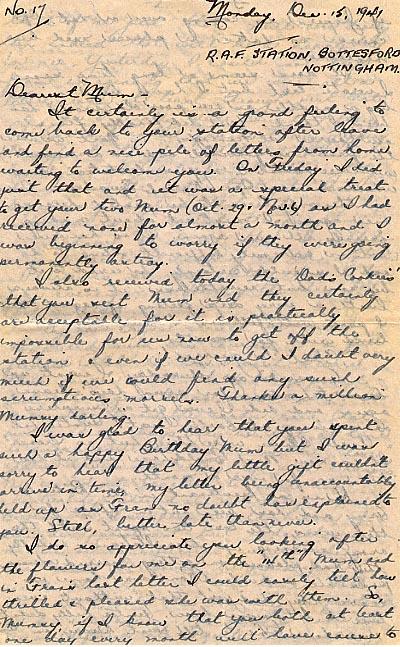 No. 17
Monday, Dec. 15, 1941
R.A.F. STATION, BOTTESFORD
NOTTINGHAM.
Dearest Mum -
It certainly is a grand feeling to
come back to your station after leave
and find a nice pile of letters from home
waiting to welcome you. On Friday I did
just that and it was a special treat
to get your two Mum (Oct. 29 + Nov. 6) as I had
received none for almost a month and I
was beginning to worry if they were going
permanently astray.
I also received today the "Dad's Cookies"
that you sent Mum and they certainly
are acceptable for it is practically
impossible for us now to get off the
station & even if we could I doubt very
much if we could find any such
scrumptious morsels. Thanks a million
Mummy darling.
I was glad to hear that you spent
such a happy Birthday Mum but I was
sorry to hear that my little gift couldn't
arrive in time, my letter being unaccountably
held up as Fran no doubt has explained to
you. Still, better late than never.
I do so appreciate you looking after
the flowers for me on the Mum and
in Fran's last letter I could easily tell how
thrilled & pleased she was with them. So
Mummy if I know that you both at least
one day every month will have to